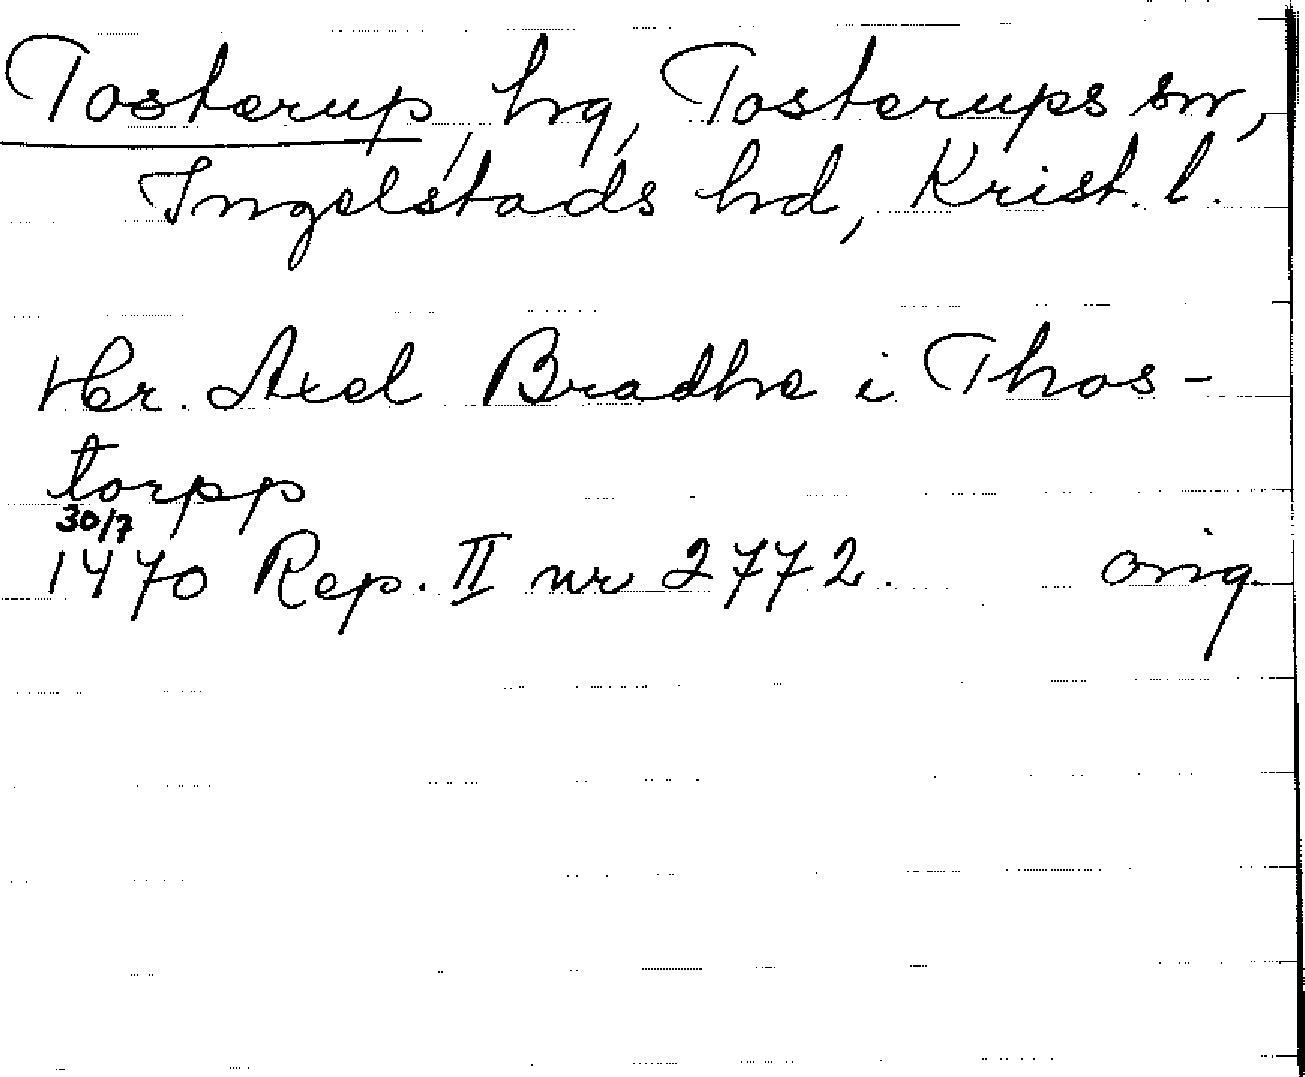 Tosterup, hg, Tosterups sn,
Ingelstads hd, Krist. l.
Her. Axel Bradhe i Thos-
torpp
30/7
1470 Rep. II nr 2772. orig.